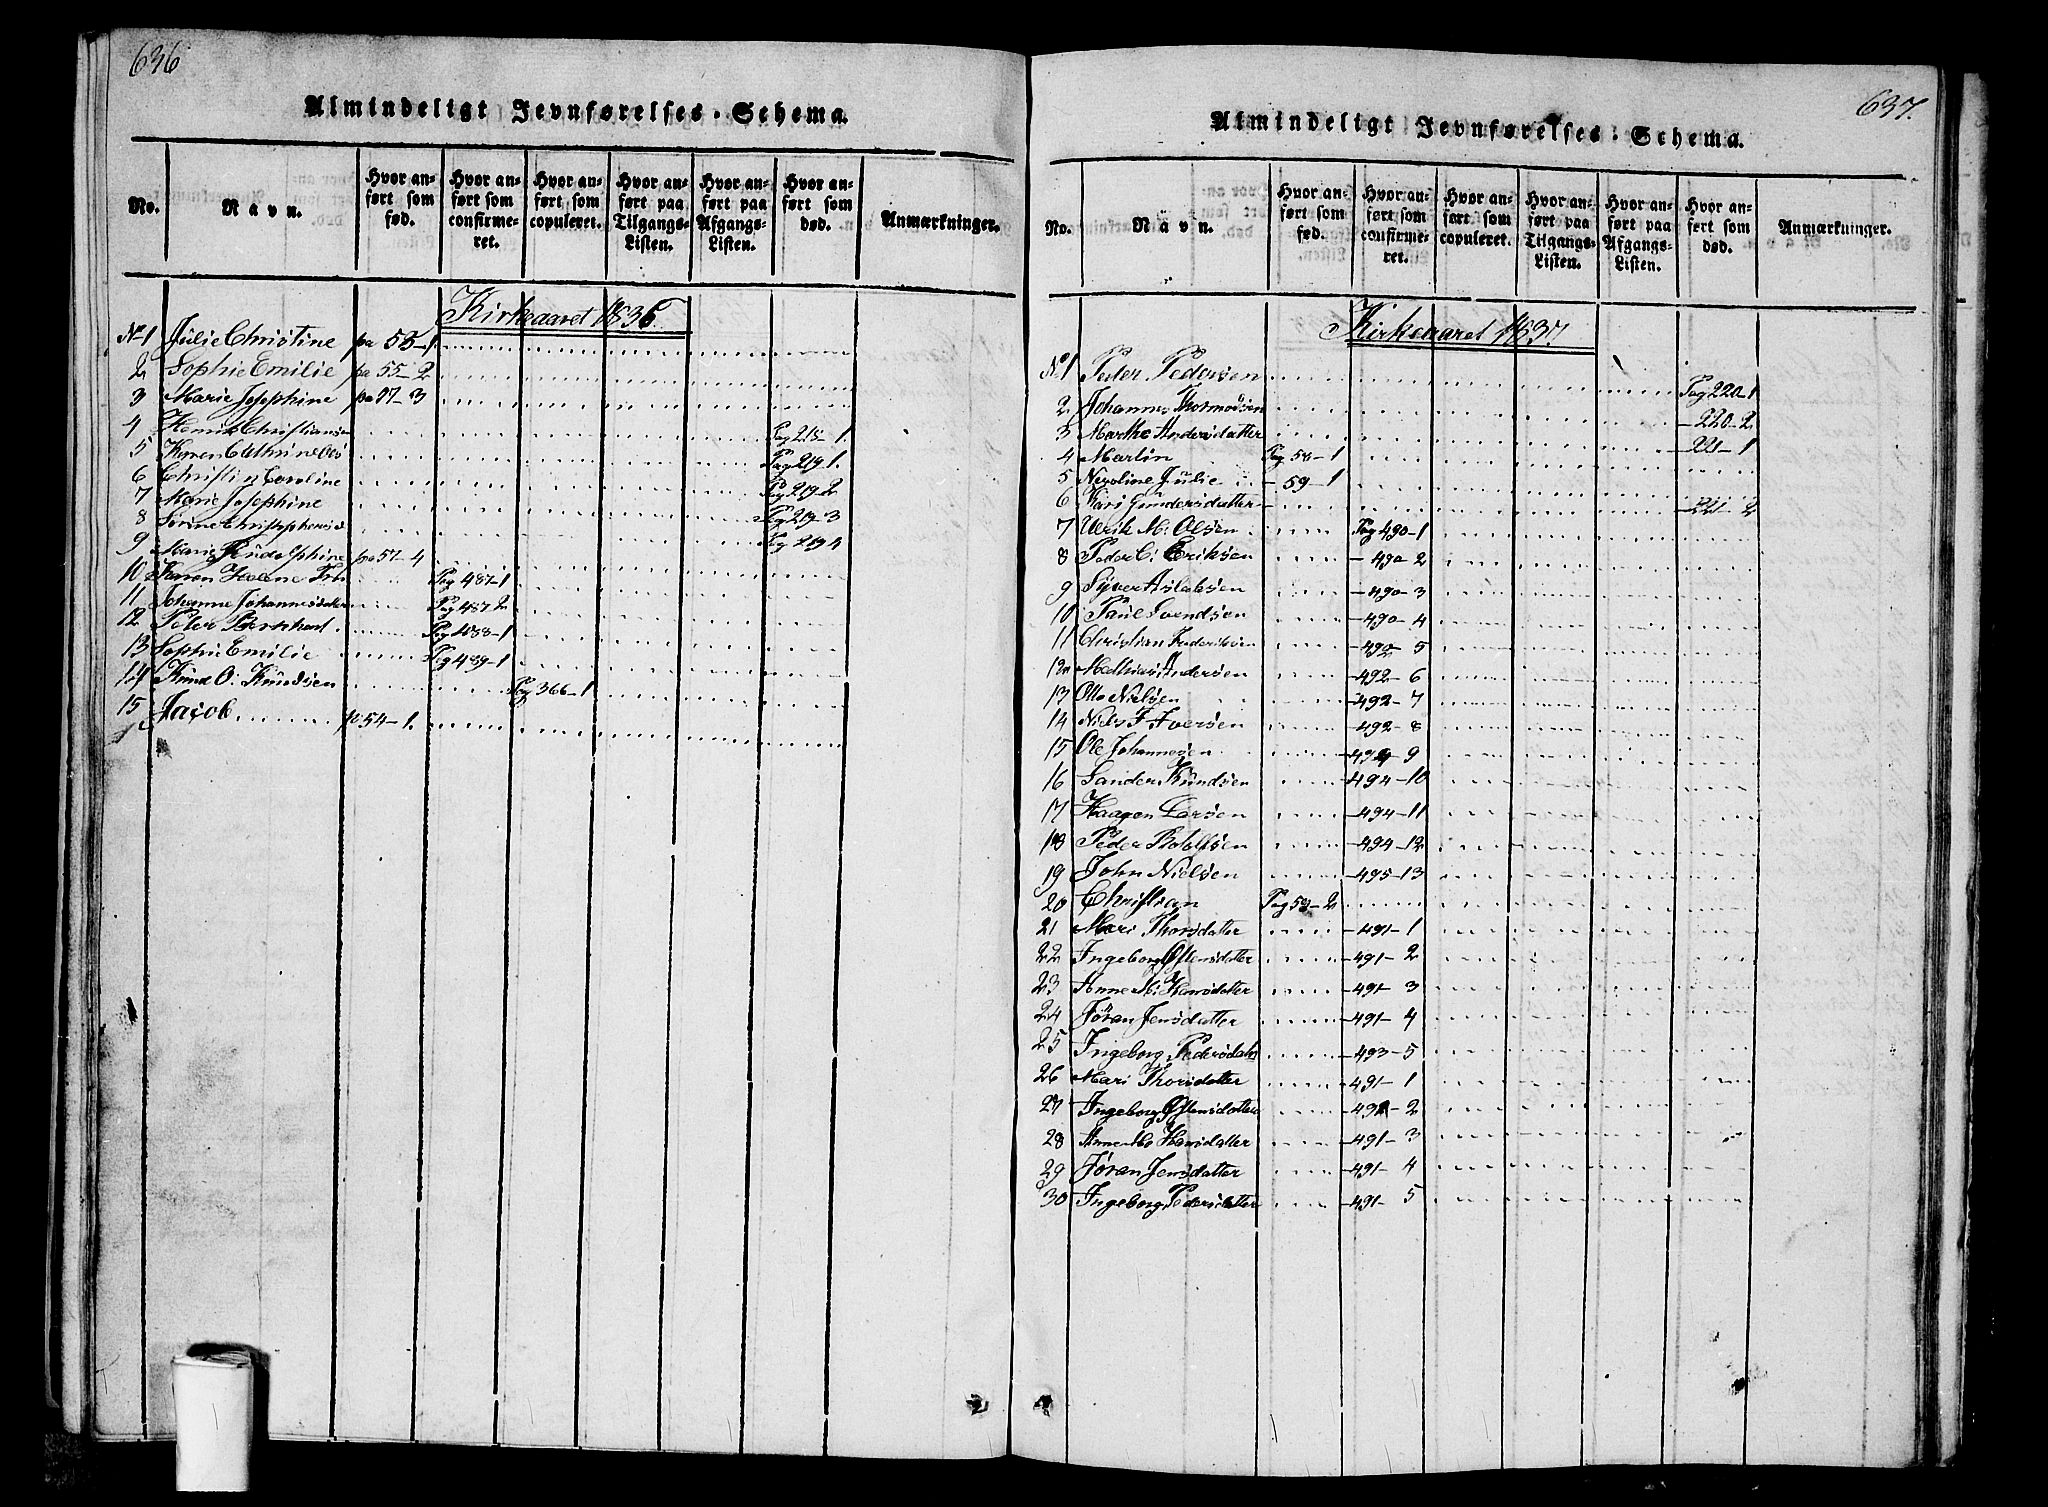 636
Almindeligt Jevnførelses-Schema.
No. Navn. Hvor anført som fød. Hvor anført som confirmeret. Hvor anført som copuleret. Hvor anført paa Tilgangs-Listen. Hvor anført paa Afgangs-Listen. Hvor anført som død. Anmærkninger.
Kirkeaaret 1836.
No 1 Julie Christine pa 53-1.
2 Sophie Emilie pa 55-2
3 Marie Josephine pa 57-3
4 Henrik Christiansen Pag 215-1.
5 Karen Cathrine Pag 219 1.
6 Christin Caroline Pag 219-2
7 Marie Josephine Pag 219-3
8 Sorine Christophersd Pag 219 4
9 Marie Josephine pa 57-4
10 Karen Pag 487-1
11 Johanne Johannesdatter Pag 487 2
12 Peter Bernhard Pag 488-1
13 Sophie Emilie Pag 489-1
14 Knud O. Knudsen Pag 366-1
15 Jacob p 54-1.
637.
Almindeligt Jevnførelses-Schema.
No. Navn. Hvor anført som fød. Hvor anført som confirmeret. Hvor anført som copuleret. Hvor anført paa Tilgangs-Listen. Hvor anført paa Afgangs-Listen. Hvor anført som død. Anmærkninger.
Kirkeaaret 1837
No 1 Peder Pedersen Pag 220-1
2 Johannes Thormodsen -220-2
3 Marthe Andersdatter -221-1
4 Martin Pag 58-1
5 Nicoline Julie -59-1
6 Kari Gundersdatter -221-2
7 Ulrik M. Olsen Pag 490-1
8 Peder C. Eriksen -490-2
9 Syver Aslaksen -490-3
10 Paul Svendsen -490-4
11 Christian Frederiksen -492-5
12 Mathias Andersen -492-6
13 Otto Nielsen -492-7
14 Niels F. Iversen -492-8
15 Ole Johannesen -494-9
16 Sander Knudsen -494-10
17 Haagen Larsen -494-11
18 Peder -494-12
19 John Nielsen -495-13
20 Christian Pag 58-2
21 Mari Thorsdatter -491-1
22 Ingeborg Østensdatter -491-2
23 Anne M. Hansdatter -491-3
24 Jøran Jensdatter -491-4
25 Ingeborg Pedersdatr -493-5
26 Mari Thorsdatter -491-1
27 Ingeborg Østensdatter -491-2
28 Anne M. Hansdatter -491-3
29 Jøran Jensdatter -491-4
30 Ingeborg Pedersdatter -491-5